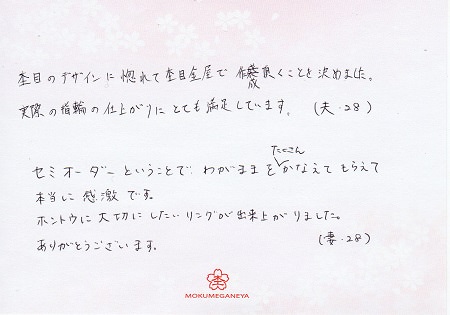 杢目のデザインに惚れて杢目金屋で作成頂くことを決めました。
実際の指輪の仕上がりにとても満足しています。 (夫・28)
セミオーダーということで、わがままをたくさんかなえてもらえて
本当に感激です。
ホントウに大切にしたいリングが出来上がりました。
ありがとうございます。 (妻・28)
杢
MOKUMEGANEYA